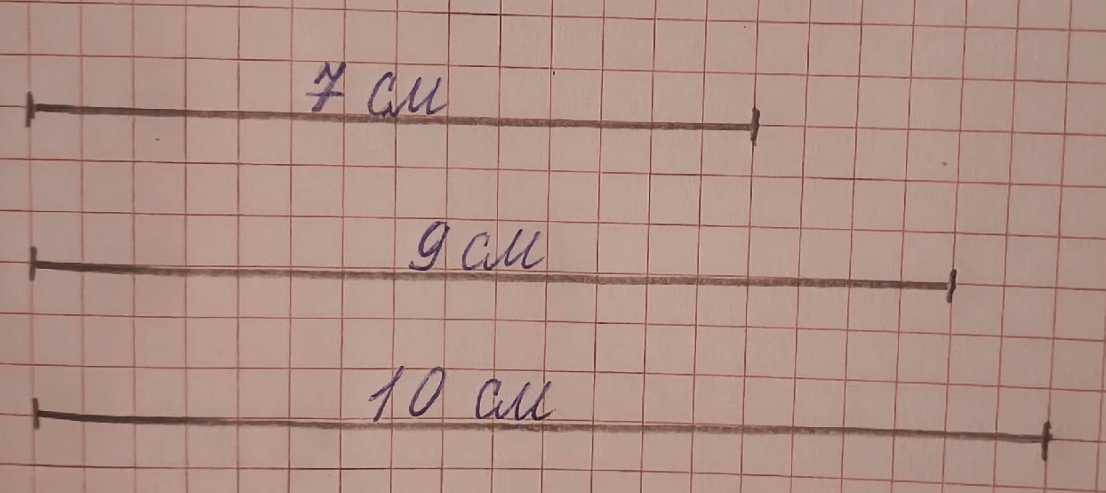 7 см
9 см
10 см